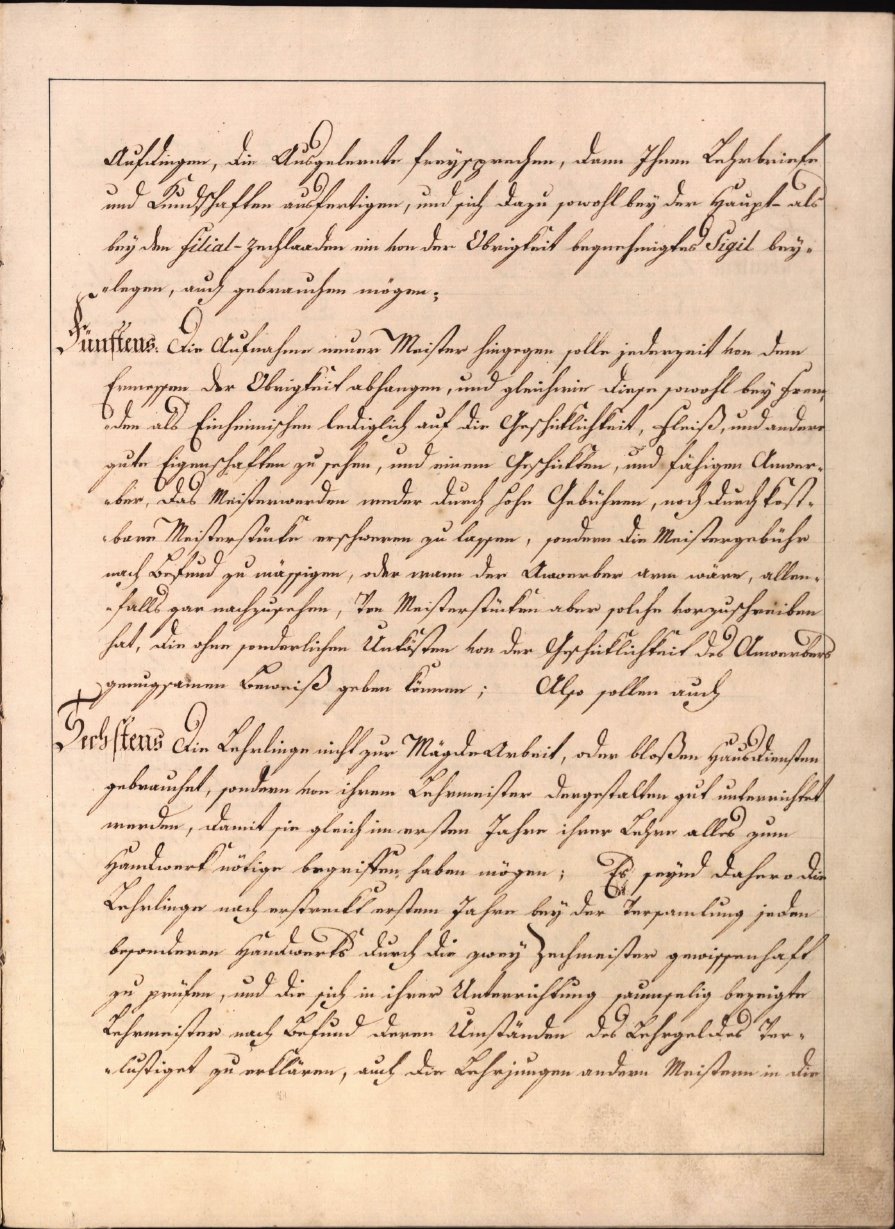 Aufdingen, die Ausgelernte freysprechen, dann Ihnen Lehrbriefe
und Kundschaften ausfertigen, und sich dazu sowohl bey der Haupt- als
bey den Filial-Zechlaaden ein von der Obrigkeit begnehmigtes Sigil bey-
-legen, auch gebrauchen mögen;
Fünftens. Die Aufnahme neuer Meister hingegen solle jederzeit von dem
Ermessen der Obrigkeit abhangen, und gleichwie diese sowohl bey Frem-
-den als Einheimischen lediglich auf die Geschiklichkeit, Fleiß, und andere
gute Eigenschaften zu sehen, und einem Geschikten, und fähigen Anwer-
-ber, das Meisterwerden weder durch hohe Gebühren, noch durch kost-
-bare Meisterstücke erschweren zu lassen, sondern die Meistergebühr
nach Befund zu mässigen, oder wann der Anwerber arm wäre, allen-
-falls gar nachzusehen, Ten Meisterstücken aber solche vorzuschreiben
hat, die ohne sonderlichen Unkösten von der Geschiklichkeit des Anwerbers
genugsamen Beweiß geben können; Also sollen auch
Sechstens Die Lehrlinge nicht zur Mägde Arbeit, oder bloßen Hausdiensten
gebrauchet, sondern von ihrem Lehrmeister dergestalten gut unterrichtet
werden, damit sie gleich im ersten Jahre ihrer Lehre alles zum
Handwerk nötige begriffen haben mögen; Es seynd dahero die
Lehrlinge nach erstreckt erstem Jahre bey der Versamlung jeden
besonderen Handwerks durch die zwey Zechmeister gewissenhaft
zu prüfen, und die sich in ihrer Unterrichtung saumselig bezeigte
Lehrmeister nach Befund deren Umständen des Lehrgeldes Ver-
-lustiget zu erklären, auch die Lehrjungen andern Meistern in die